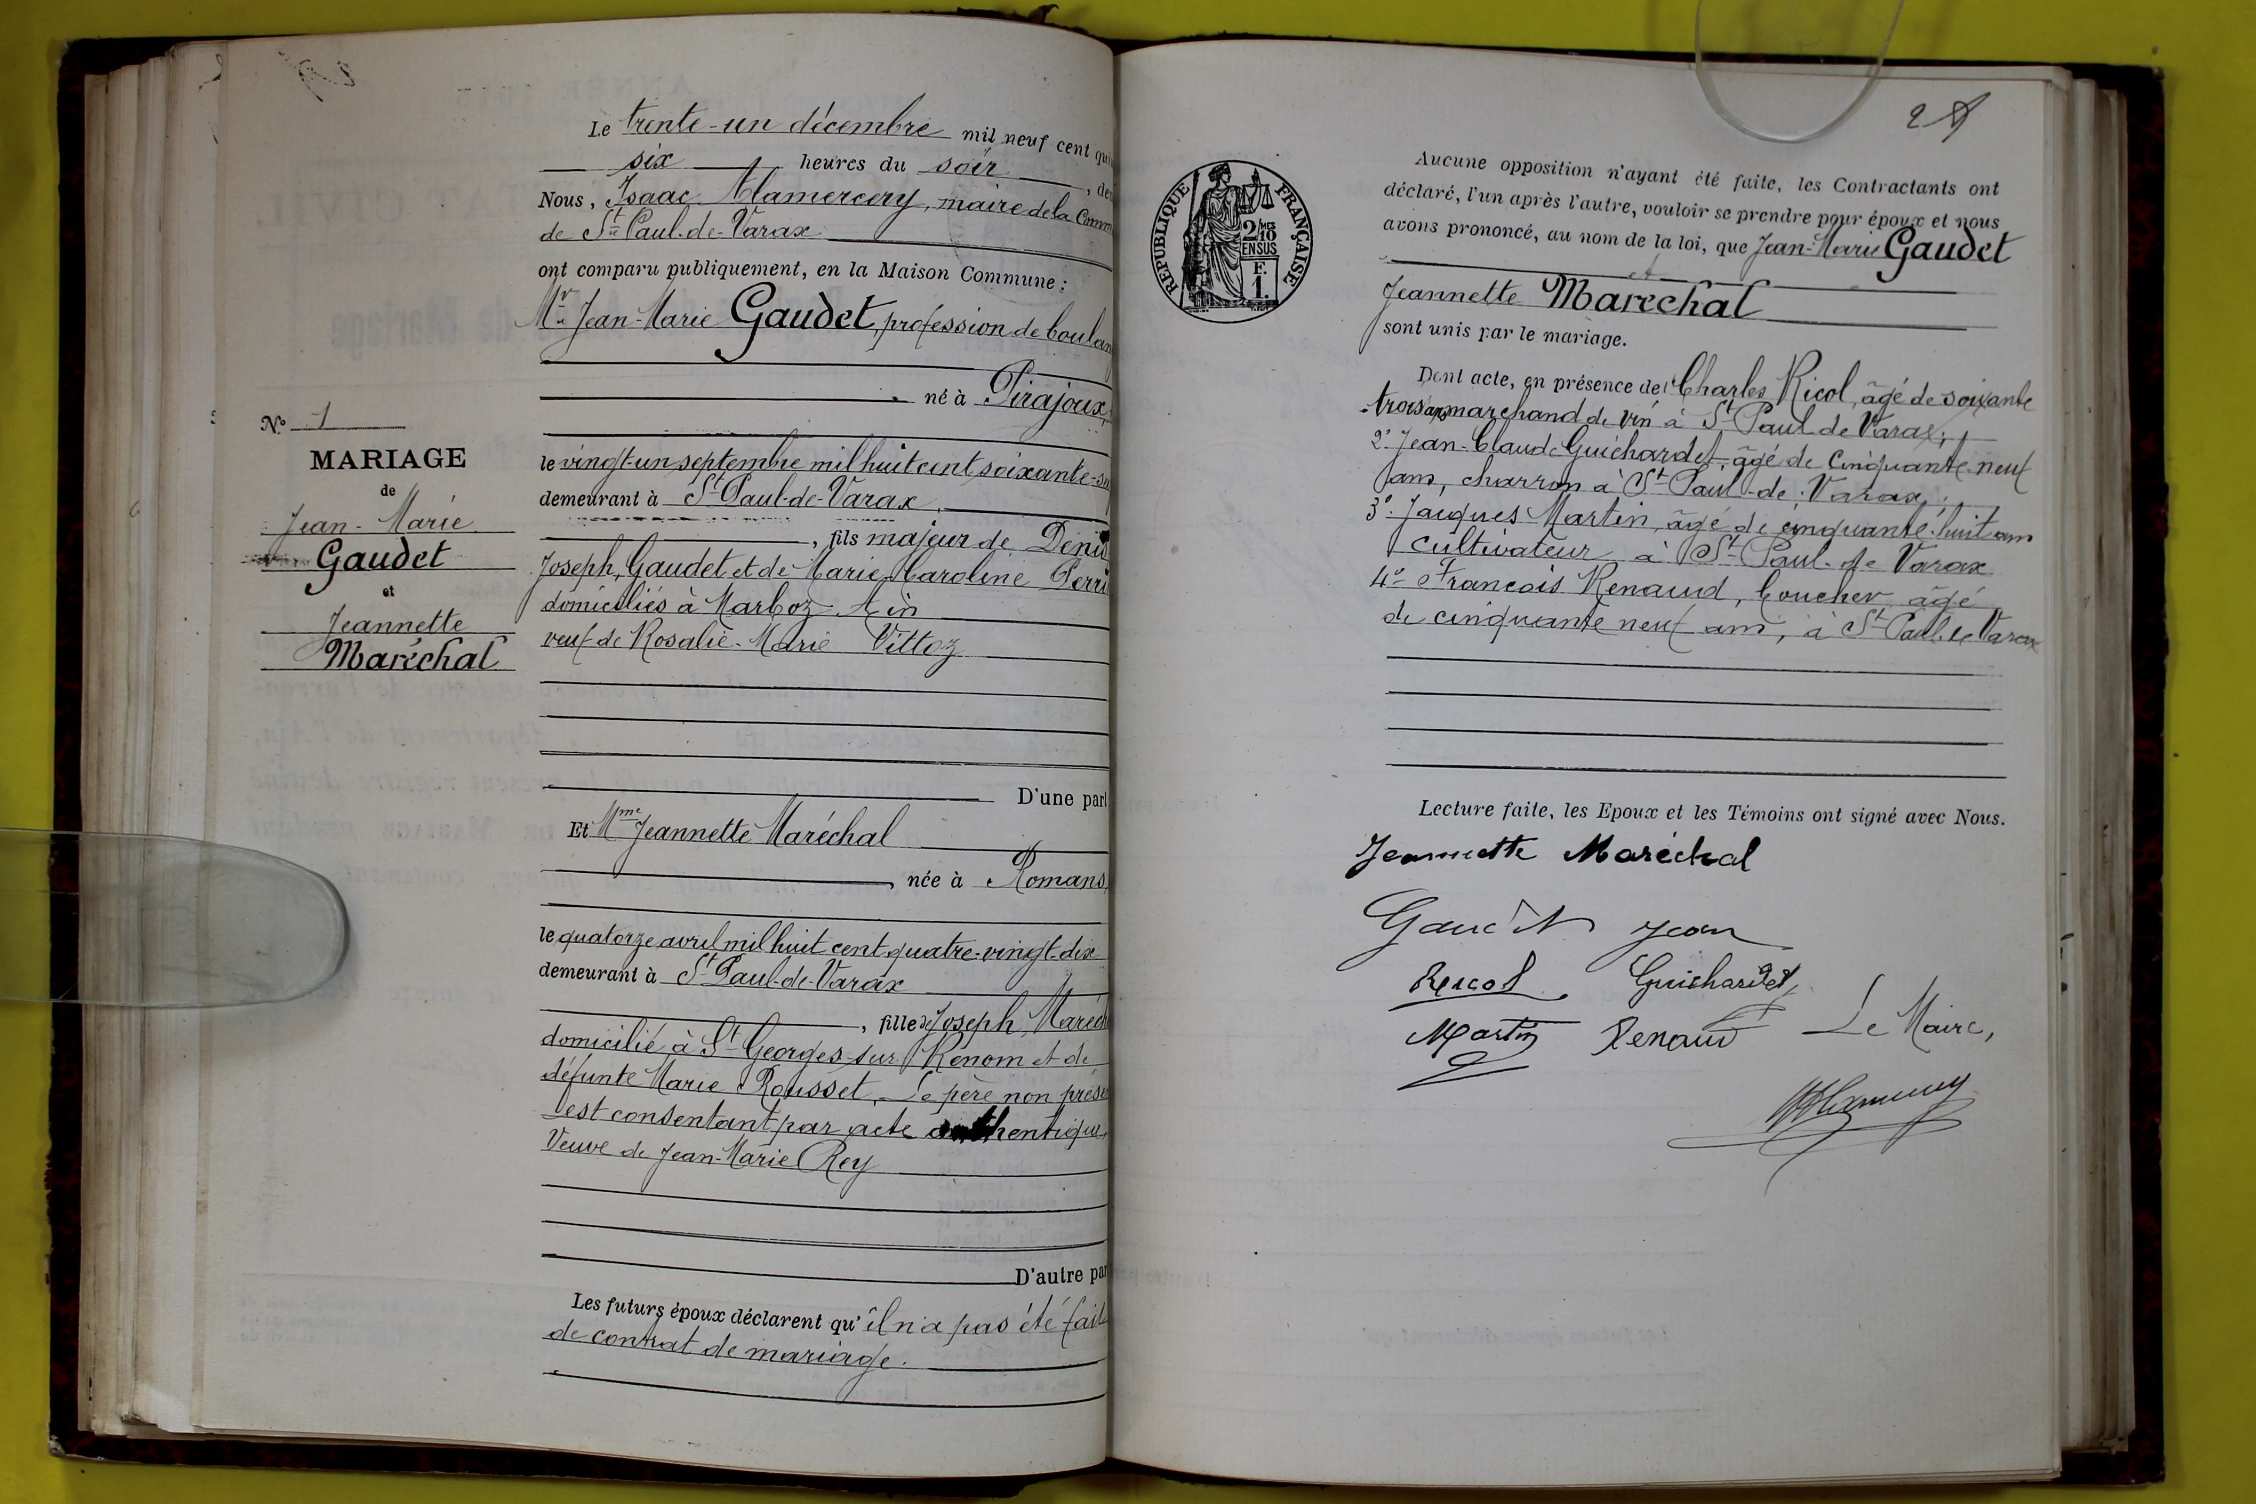 Le trente-un décembre mil neuf cent qui
six heures du soir, de
Nous, Isaac Mamercery, maire de la Comm
de St Paul-de-Varax
ont comparu publiquement, en la Maison Commune :
Mr Jean-Marie Gaudet, profession de boulan
né à Pirajoux,
le vingt-un septembre mil huit cent soixante-
demeurant à St Paul-de-Varax,
, fils majeur de Denis
Joseph Gaudet et de Marie Caroline Perri
domiciliés à Marboz Ain
veuf de Rosalie-Marie Vittoz
D'une part
Et Mme Jeannette Maréchal
née à Romans,
le quatorze avril mil huit cent quatre-vingt-dix
demeurant à St Paul-de-Varax
, fille de Joseph Maréch
domicilié à St Georges-sur-Renom et de
défunte Marie Rousset, Le père non prése
est consentant par acte authentique
Veuve de Jean-Marie Rey
D'autre par
Les futurs époux déclarent qu'il n'a pas été fait
de contrat de mariage.
No 1
MARIAGE
de
Jean-Marie
Gaudet
et
Jeannette
Maréchal
REPUBLIQUE FRANÇAISE
2/10
EN SUS
F.
1.
Aucune opposition n'ayant été faite, les Contractants ont
déclaré, l'un après l'autre, vouloir se prendre pour époux et nous
avons prononcé, au nom de la loi, que Jean-Marie Gaudet
et
Jeannette Maréchal
sont unis par le mariage.
Dont acte, en présence de 1° Charles Ricol, âgé de soixante
-trois ans marchand de vin à St Paul de Varax;
2° Jean-Claude Guichardet, âgé de cinquante-neuf
ans, charron à St Paul-de-Varax,
3° Jacques Martin, âgé de cinquante-huit ans
cultivateur à St Paul-de Varax
4° Francois Renaud, boucher âgé
de cinquante neuf ans, à St Paul de Varax
Lecture faite, les Epoux et les Témoins ont signé avec Nous.
Jeannette Maréchal
Gaudet Jean
Ricol Guichardet
Martin Renaud Le Maire,